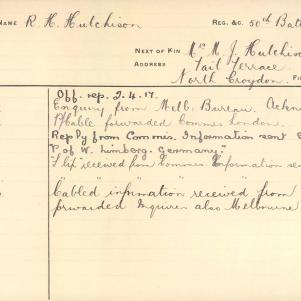 NAME R. H. Hutchison REG. &C. 50th Batt
NEXT OF KIN Mrs M. J. Hutchiso
ADDRESS Tait Terrace
North Croydon. Fi
Off. rep. 2.4.17.
Enquiry from Melb. Bureau. Ackno
Cable forwarded Commis. London.
Reply from Commis. Information sent
P. of W. Limberg. Germany."
"Slip" received from Commis. Information sen
"Cabled" information received from
forwarded Inquirer also Melbourne